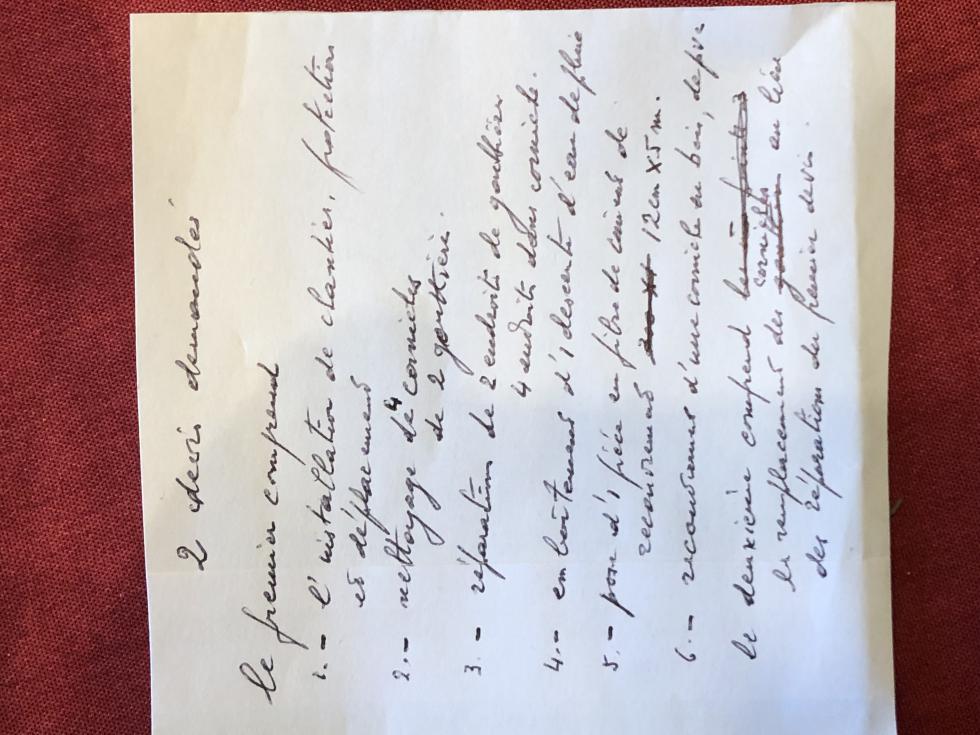 2 devis demandés
le premier comprend
1.- l'installation de chantier, protection
et déplacement
2.- nettoyage de 4 corniches
de 2 gouttières.
3.- réparation de 2 endroits de gouttière
4 endroits dans corniche.
4.- emboîtement d'1 descente d'eau de pluie
5.- pose d'1 pièce en fibrociment de
recouvrement 12cm x 5m.
6.- recouvrement d'une corniche en bois,
le deuxième comprend
le remplacement des corniches au lieu
des réparations du premier devis.